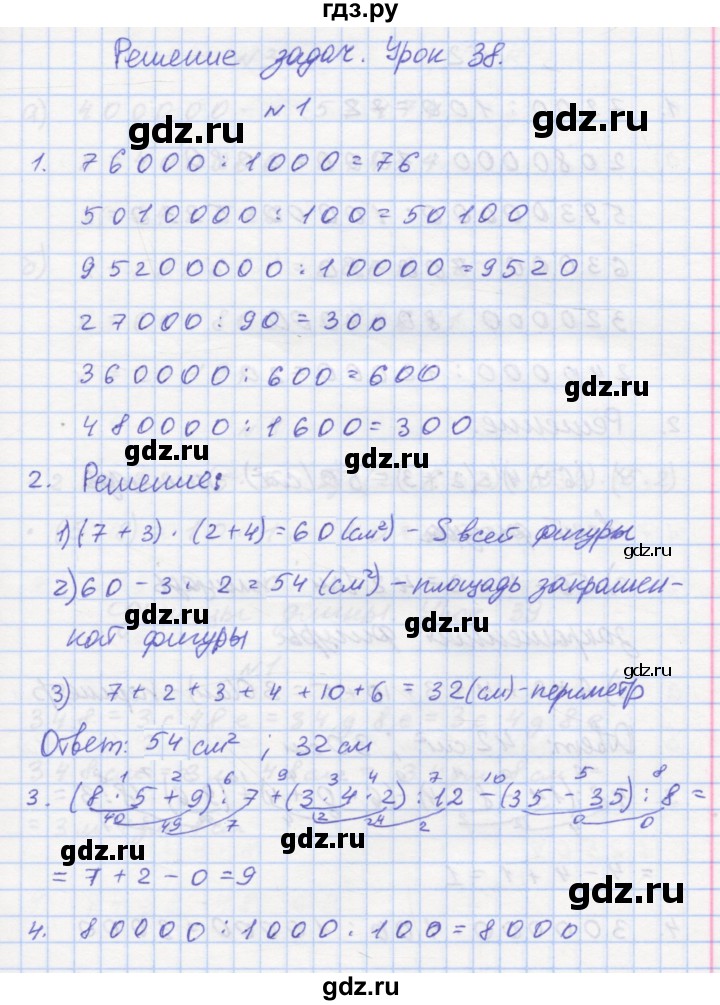 гдз.ру
Решение задач. Урок 38.
№1
1. 76000 : 1000 = 76
5010000 : 100 = 50100
95200000 : 10000 = 9520
27000 : 90 = 300
360000 : 600 = 600
480000 : 1600 = 300
2. Решение:
1) (7 + 3) · (2 + 4) = 60 (см²) – S всей фигуры
2) 60 – 3 · 2 = 54 (см²) – площадь закрашен-
ной фигуры
3) 7 + 2 + 3 + 4 + 10 + 6 = 32 (см) – периметр
Ответ: 54 см² ; 32 см
1 2 6 9 3 4 7 10 5 8
3. (8 · 5 + 9) : 7 + (3 · 4 · 2) : 12 – (35 – 35) : 8 =
40 49 7 12 24 2 0 0
= 7 + 2 – 0 = 9
4. 80000 : 1000 · 100 = 8000
gdz.ru
gdz.ru
gdz.ru
gdz.ru
gdz.ru
gdz.ru
gdz.ru
gdz.ru
gdz.ru
gdz.ru
gdz.ru
gdz.ru